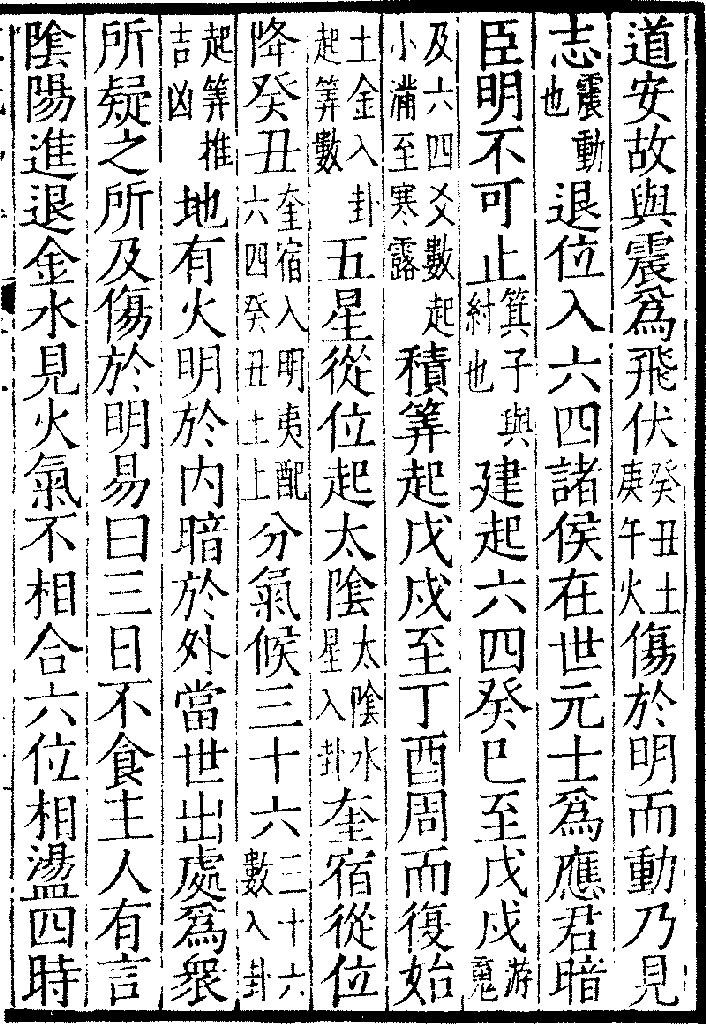 道安故與震爲飛伏癸丑土庚午火傷於明而動乃見
志震動也退位入六四諸侯在世元士爲應君暗
臣明不可止箕子與紂也建起六四癸巳至戊戌游魂
及六四爻數起小滿至寒露積筭起戊戌至丁酉周而復始
土金入卦起筭數五星從位起太陰太陰水星入卦奎宿從位
降癸丑奎宿入明夷配六四癸丑土上分氣候三十六三十六數入卦
起筭推吉凶地有火明於内暗於外當世出處爲衆
所疑之所及傷於明易曰三日不食主人有言
陰陽進退金水見火氣不相合六位相盪四時